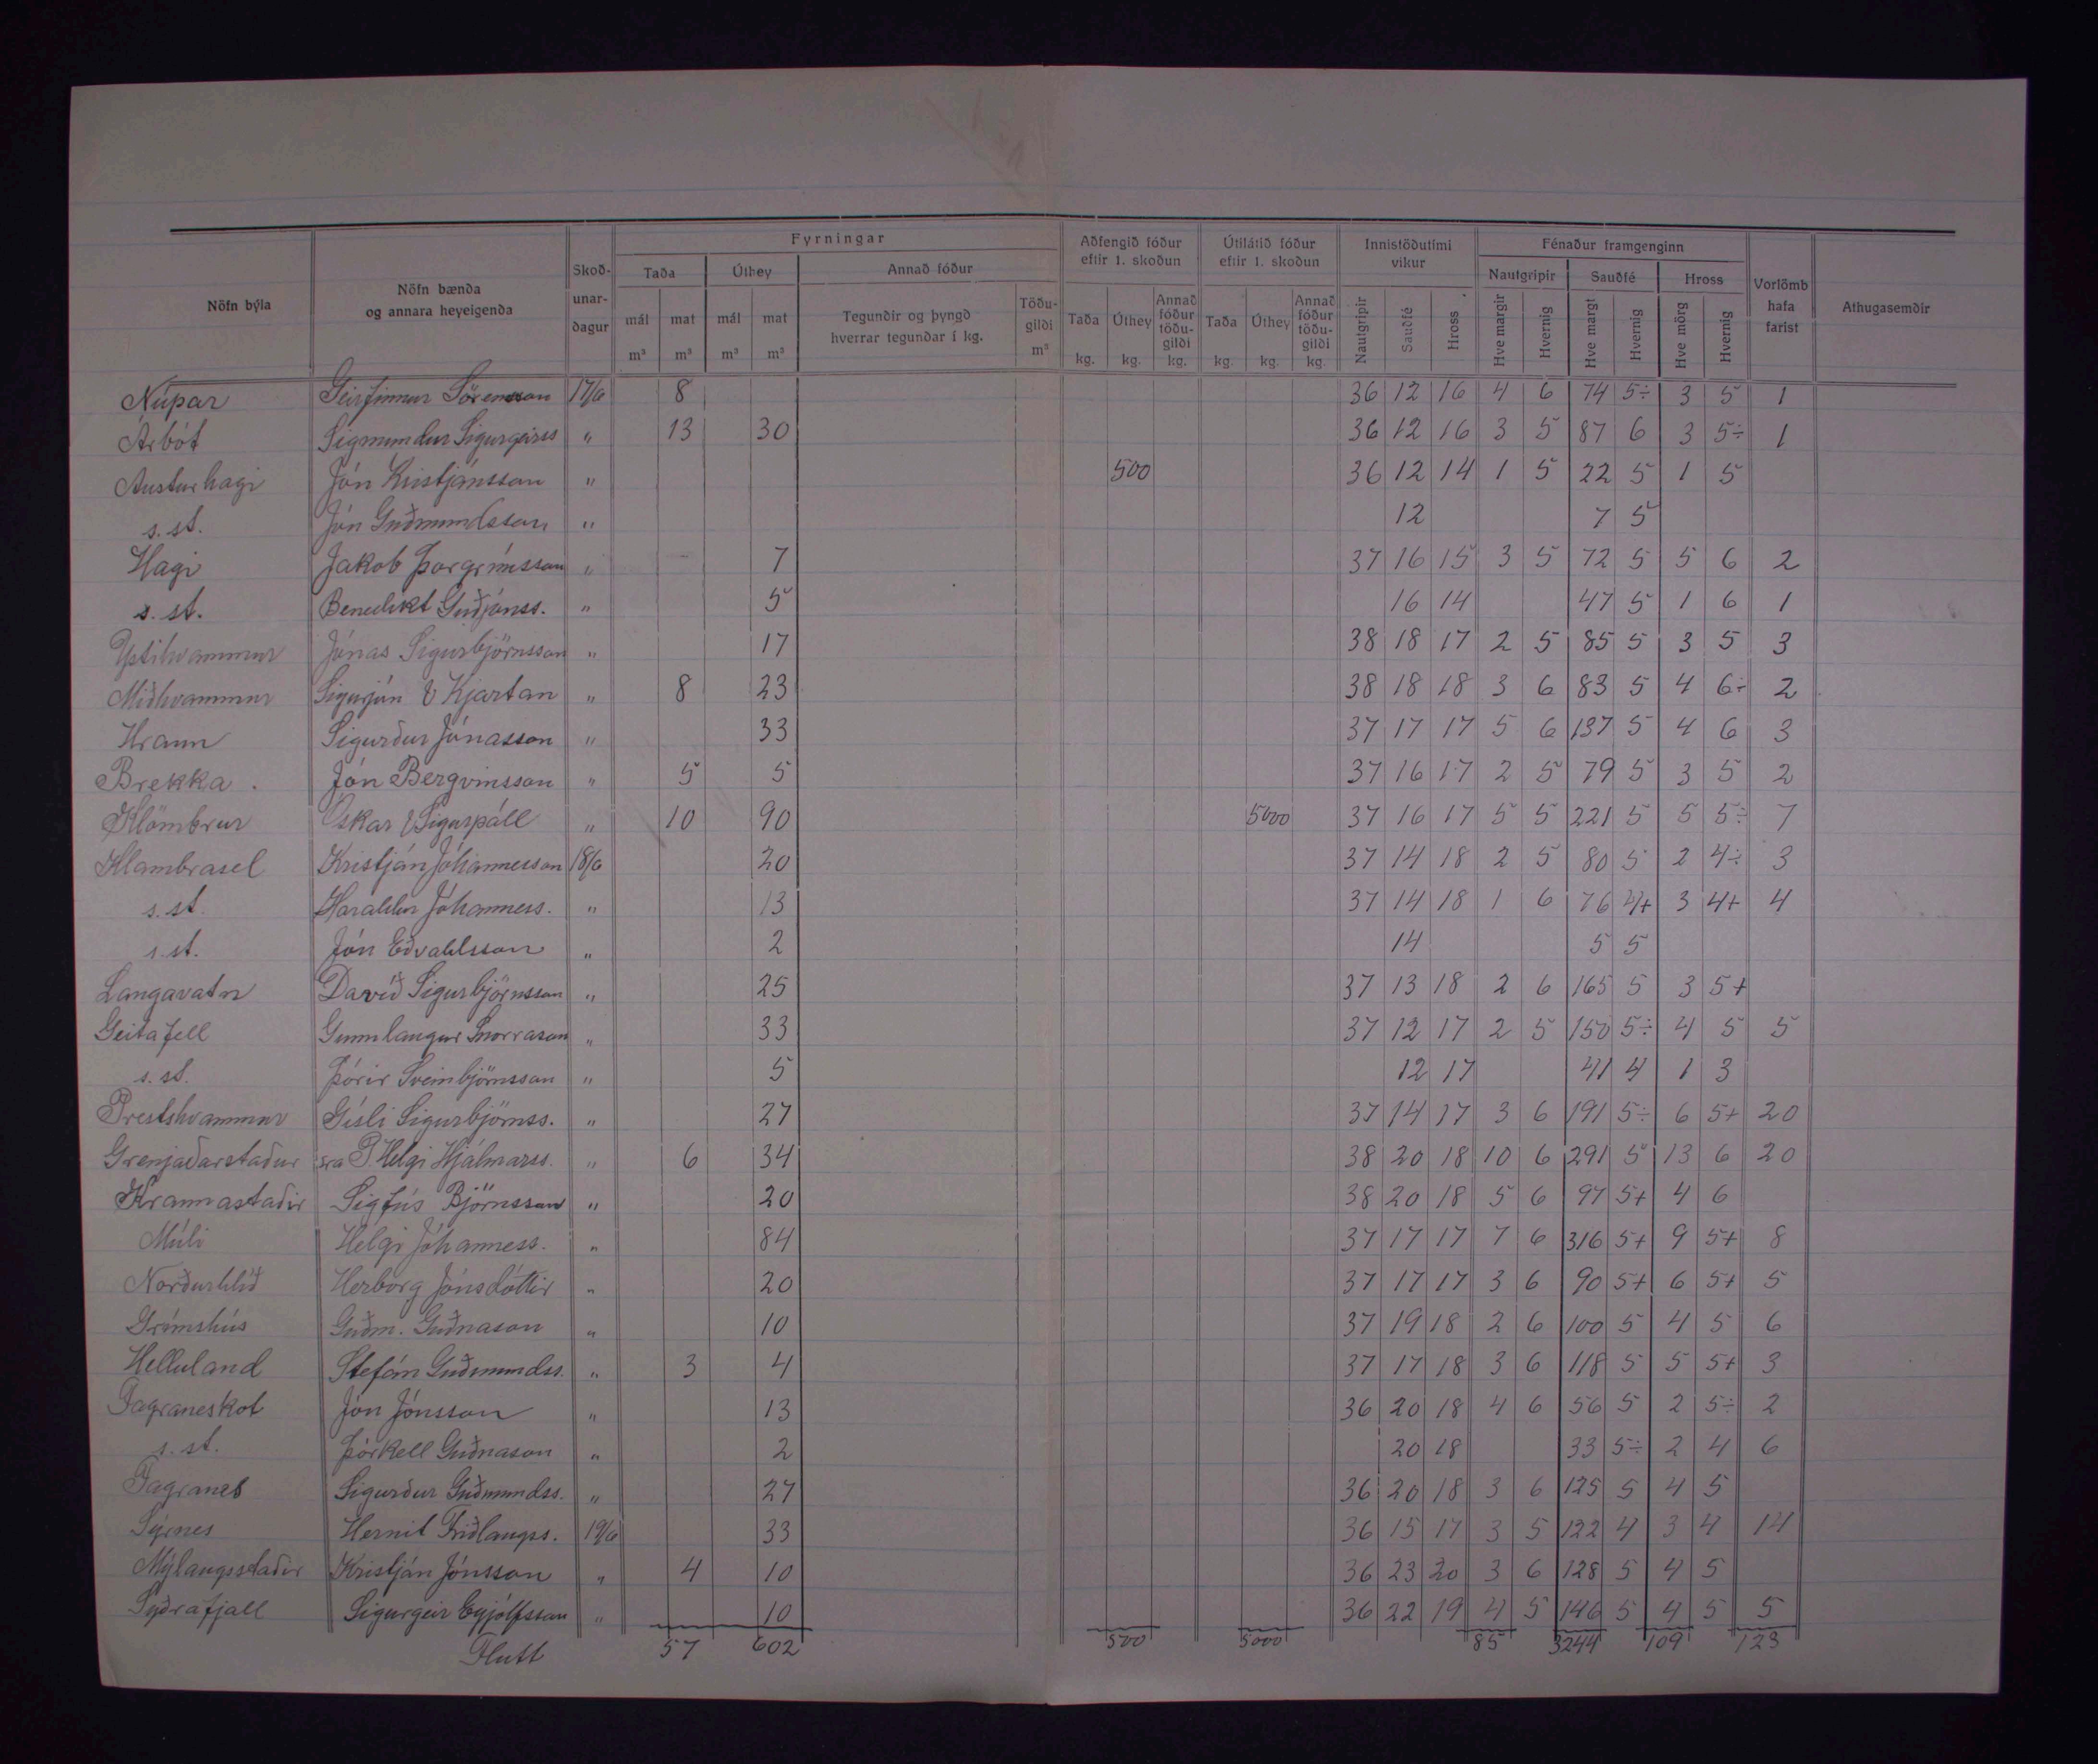 Nöfn býla | Nöfn bænda og annara heyeigenda | Skoðunardagur | Fyrningar | Aðfengið fóður eftir 1. skoðun | Útilátið fóður eftir 1. skoðun | Innistöðutími vikur | Fénaður framgenginn | Vorlömb hafa farist | Athugasemdir
Taða | Úthey | Annað fóður | Nautgripir | Sauðfé | Hross
mál m³ | mat m³ | mál m³ | mat m³ | Tegundir og þyngd hverrar tegundar í kg. | Töðugildi m³ | Taða kg. | Úthey kg. | Annað fóður töðugildi kg. | Taða kg. | Úthey kg. | Annað fóður töðugildi kg. | Nautgripir | Sauðfé | Hross | Hve margir | Hvernig | Hve margt | Hvernig | Hve mörg | Hvernig
Núpar Geirfinnur Sörensson 17/6 8 36 12 16 4 6 74 5÷ 3 5 1
Árbót Sigmundur Sigurgeirss " 13 30 36 12 16 3 5 87 6 3 5÷ 1
Austurhagi Jón Kristjánsson " 500 36 12 14 1 5 22 5 1 5
s.st. Jón Guðmundsson " 12 7 5
Hagi Jakob Þorgrímsson " - 7 37 16 15 3 5 72 5 5 6 2
s.st. Benedikt Guðjónss. " 5 16 14 47 5 1 6 1
Ystihvammur Jónas Sigurbjörnsson " 17 38 18 17 2 5 85 5 3 5 3
Miðhvammur Sigurjón & Kjartan " 8 23 38 18 18 3 6 83 5 4 6÷ 2
Hraun Sigurður Jónasson " 33 37 17 17 5 6 137 5 4 6 3
Brekka . Jón Bergvinsson " 5 5 37 16 17 2 5 79 5 3 5 2
Klömbrur Óskar & Sigurpáll " 10 90 5000 37 16 17 5 5 221 5 5 5÷ 7
Klambrasel Kristján Jóhannesson 18/6 20 37 14 18 2 5 80 5 2 4÷ 3
s.st. Haraldur Jóhanness. " 13 37 14 18 1 6 76 4+ 3 4+ 4
s.st. Jón Eðvaldsson " 2 14 5 5
Langavatn Davíð Sigurbjörnsson " 25 37 13 18 2 6 165 5 3 5+
Geitafell Gunnlaugur Snorrason " 33 37 12 17 2 5 150 5÷ 4 5 5
s.st. Þórir Sveinbjörnsson " 5 12 17 41 4 1 3
Prestshvammur Gísli Sigurbjörnss. " 27 37 14 17 3 6 191 5÷ 6 5+ 20
Grenjaðarstaður sra P Helgi Hjálmarss. " 6 34 38 20 18 10 6 291 5 13 6 20
Hrannastaðir Sigfús Björnsson " 20 38 20 18 5 6 97 5+ 4 6
Múli Helgi Jóhanness. " 84 37 17 17 7 6 316 5+ 9 5+ 8
Norðurhlíð Herborg Jónsdóttir " 20 37 17 17 3 6 90 5+ 6 5+ 5
Grímshús Guðm. Guðnason " 10 37 19 18 2 6 100 5 4 5 6
Helluland Stefán Guðmundss. " 3 4 37 17 18 3 6 118 5 5 5+ 3
Fagraneskot Jón Jónsson " 13 36 20 18 4 6 56 5 2 5÷ 2
s.st. Þórkell Guðnason " 2 20 18 33 5÷ 2 4 6
Fagranes Sigurður Guðmundss. " 27 36 20 18 3 6 125 5 4 5
Sýrnes Hernit Friðlaugss. 19/6 33 36 15 17 3 5 122 4 3 4 14
Mýlaugsstaðir Kristján Jónsson " 4 10 36 23 20 3 6 128 5 4 5
Syðrafjall Sigurgeir Eyjólfsson " 10 36 22 19 4 5 146 5 4 5 5
Flutt 57 602 500 5000 85 3244 109 123